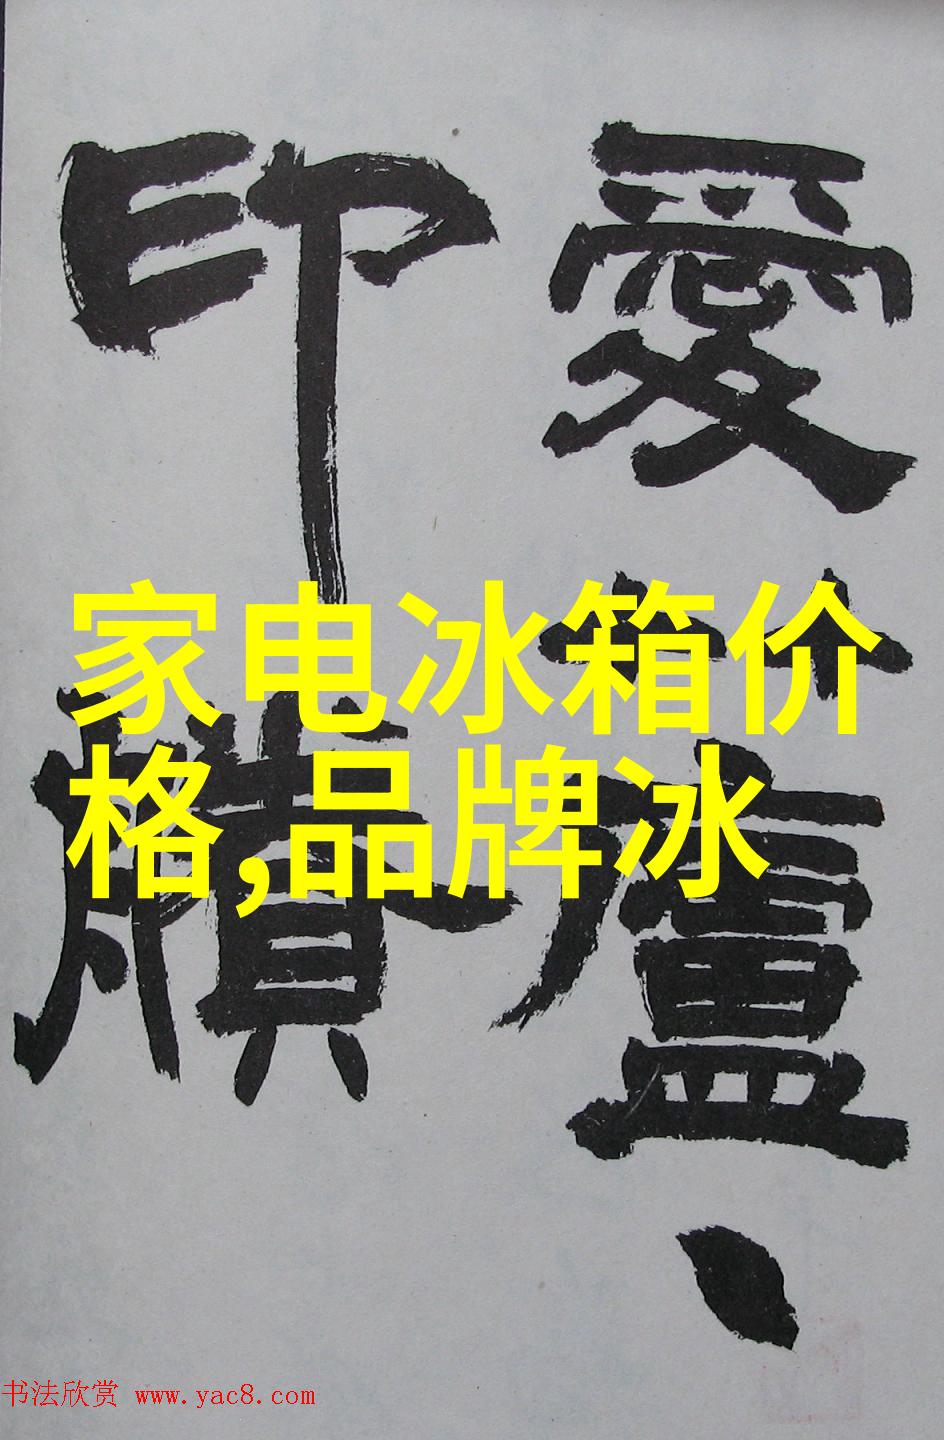 愛蘆
印
家电冰箱价
格,品牌冰
书法欣赏 www.yac8.com